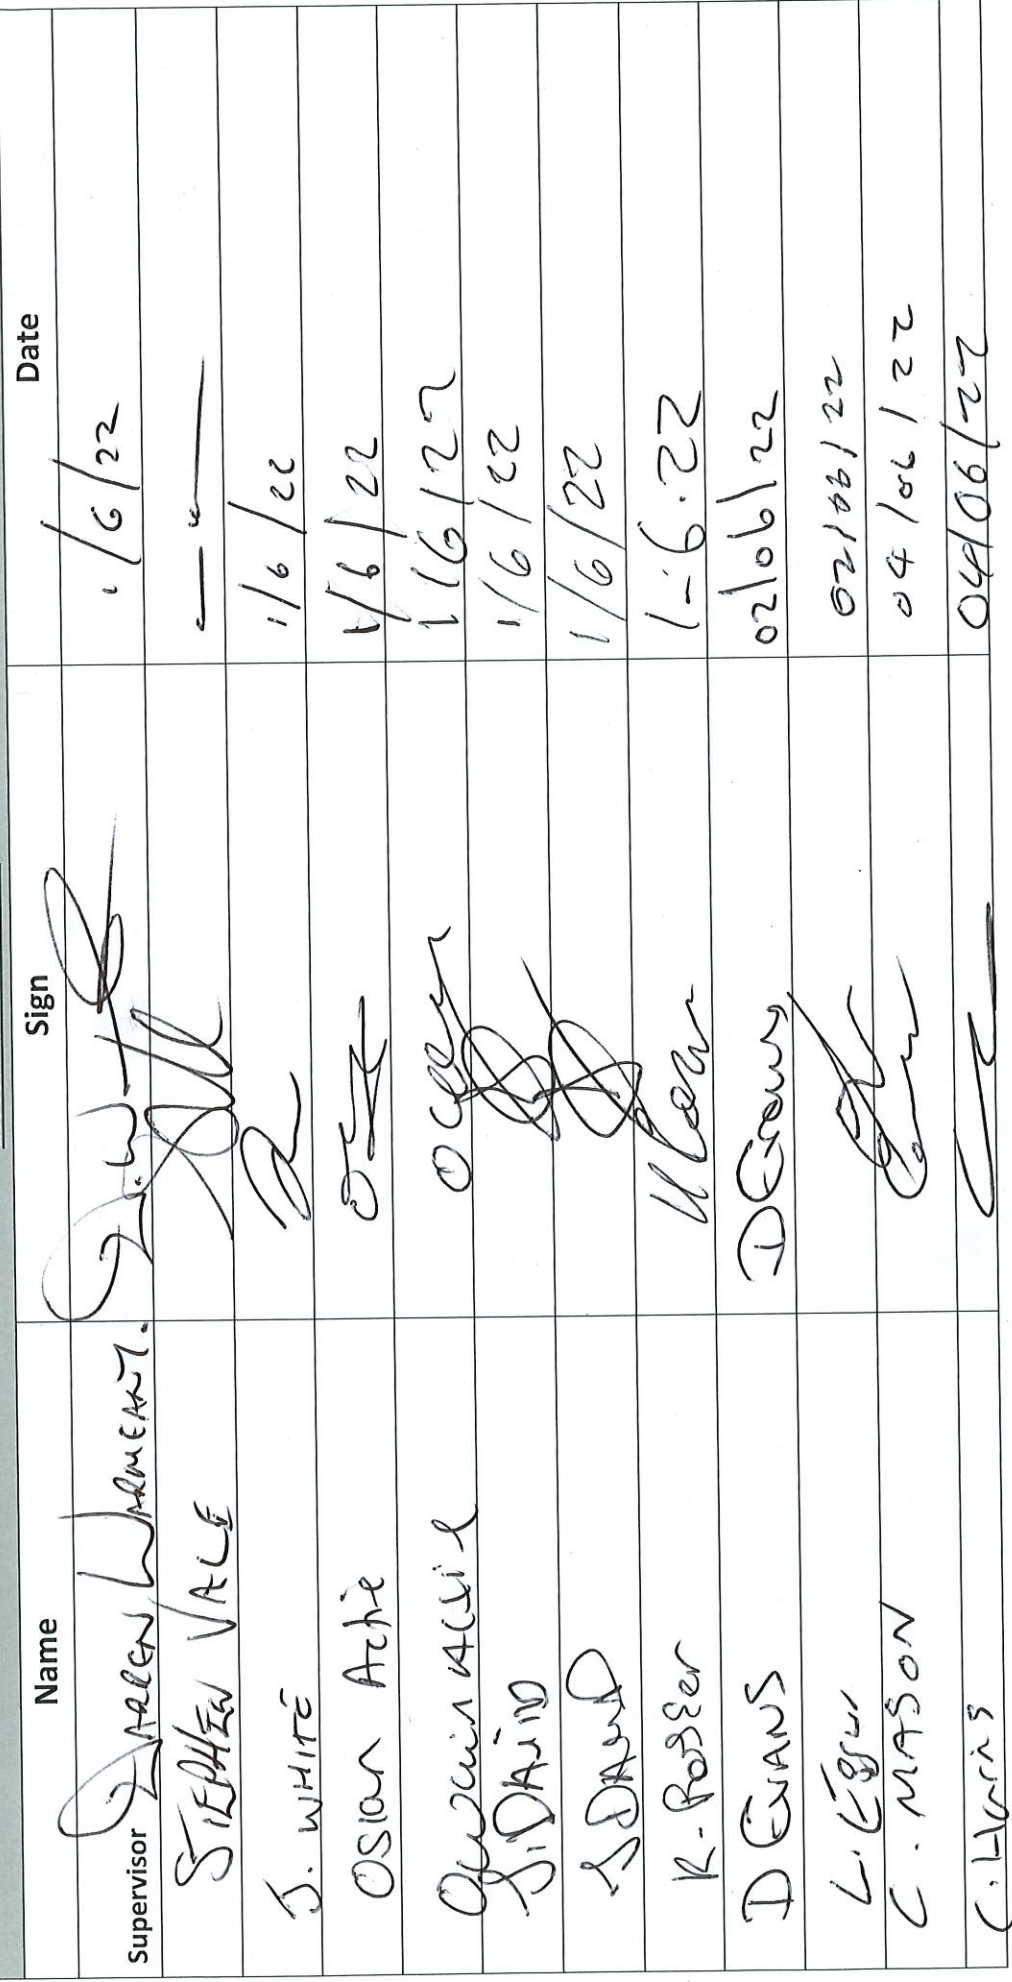 Name Sign Date
Supervisor DARREN WARMEANT. 1/6/22
STEPHEN VALE — " —
J. WHITE 1/6/22
Osian 1/6/22
1/6/22
J. DAVID 1/6/22
S DAVID 1/6/22
K. Rosser 1-6.22
D EVANS D Evans 02/06/22
L. 02/06/22
C. MASON 04/06/22
C. Harris 04/06/22